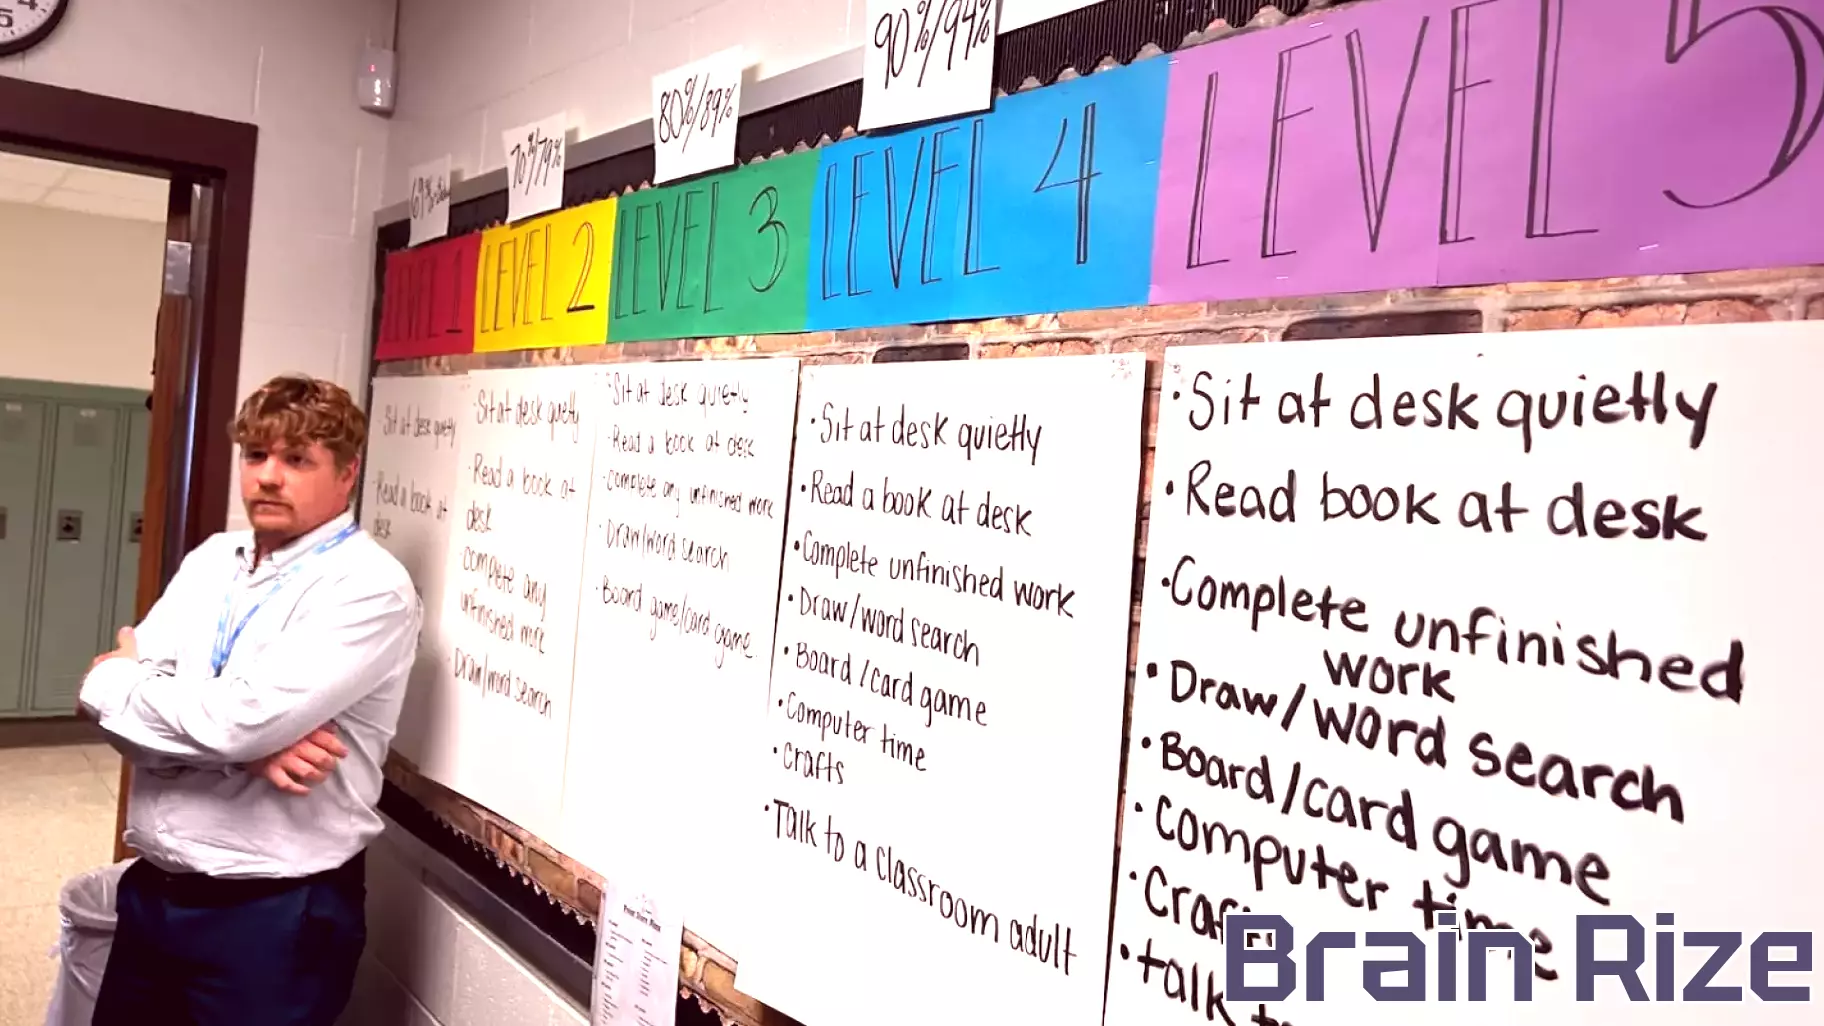 69%-
70%/79%
80%/89%
90%/94%
LEVEL 1
LEVEL 2
LEVEL 3
LEVEL 4
LEVEL 5
·Sit at desk quietly
·Read a book at
desk
·Sit at desk quietly
·Read a book at
desk
·Complete any
unfinished work
·Draw/word search
·Sit at desk quietly
·Read a book at desk
·Complete any unfinished work
·Draw/word search
·Board game/card game
·Sit at desk quietly
·Read a book at desk
·Complete unfinished work
·Draw/word search
·Board/card game
·Computer time
·Crafts
·Talk to a classroom adult
·Sit at desk quietly
·Read book at desk
·Complete unfinished
work
·Draw/word search
·Board/card game
·Computer time
·talk
Brain Rize